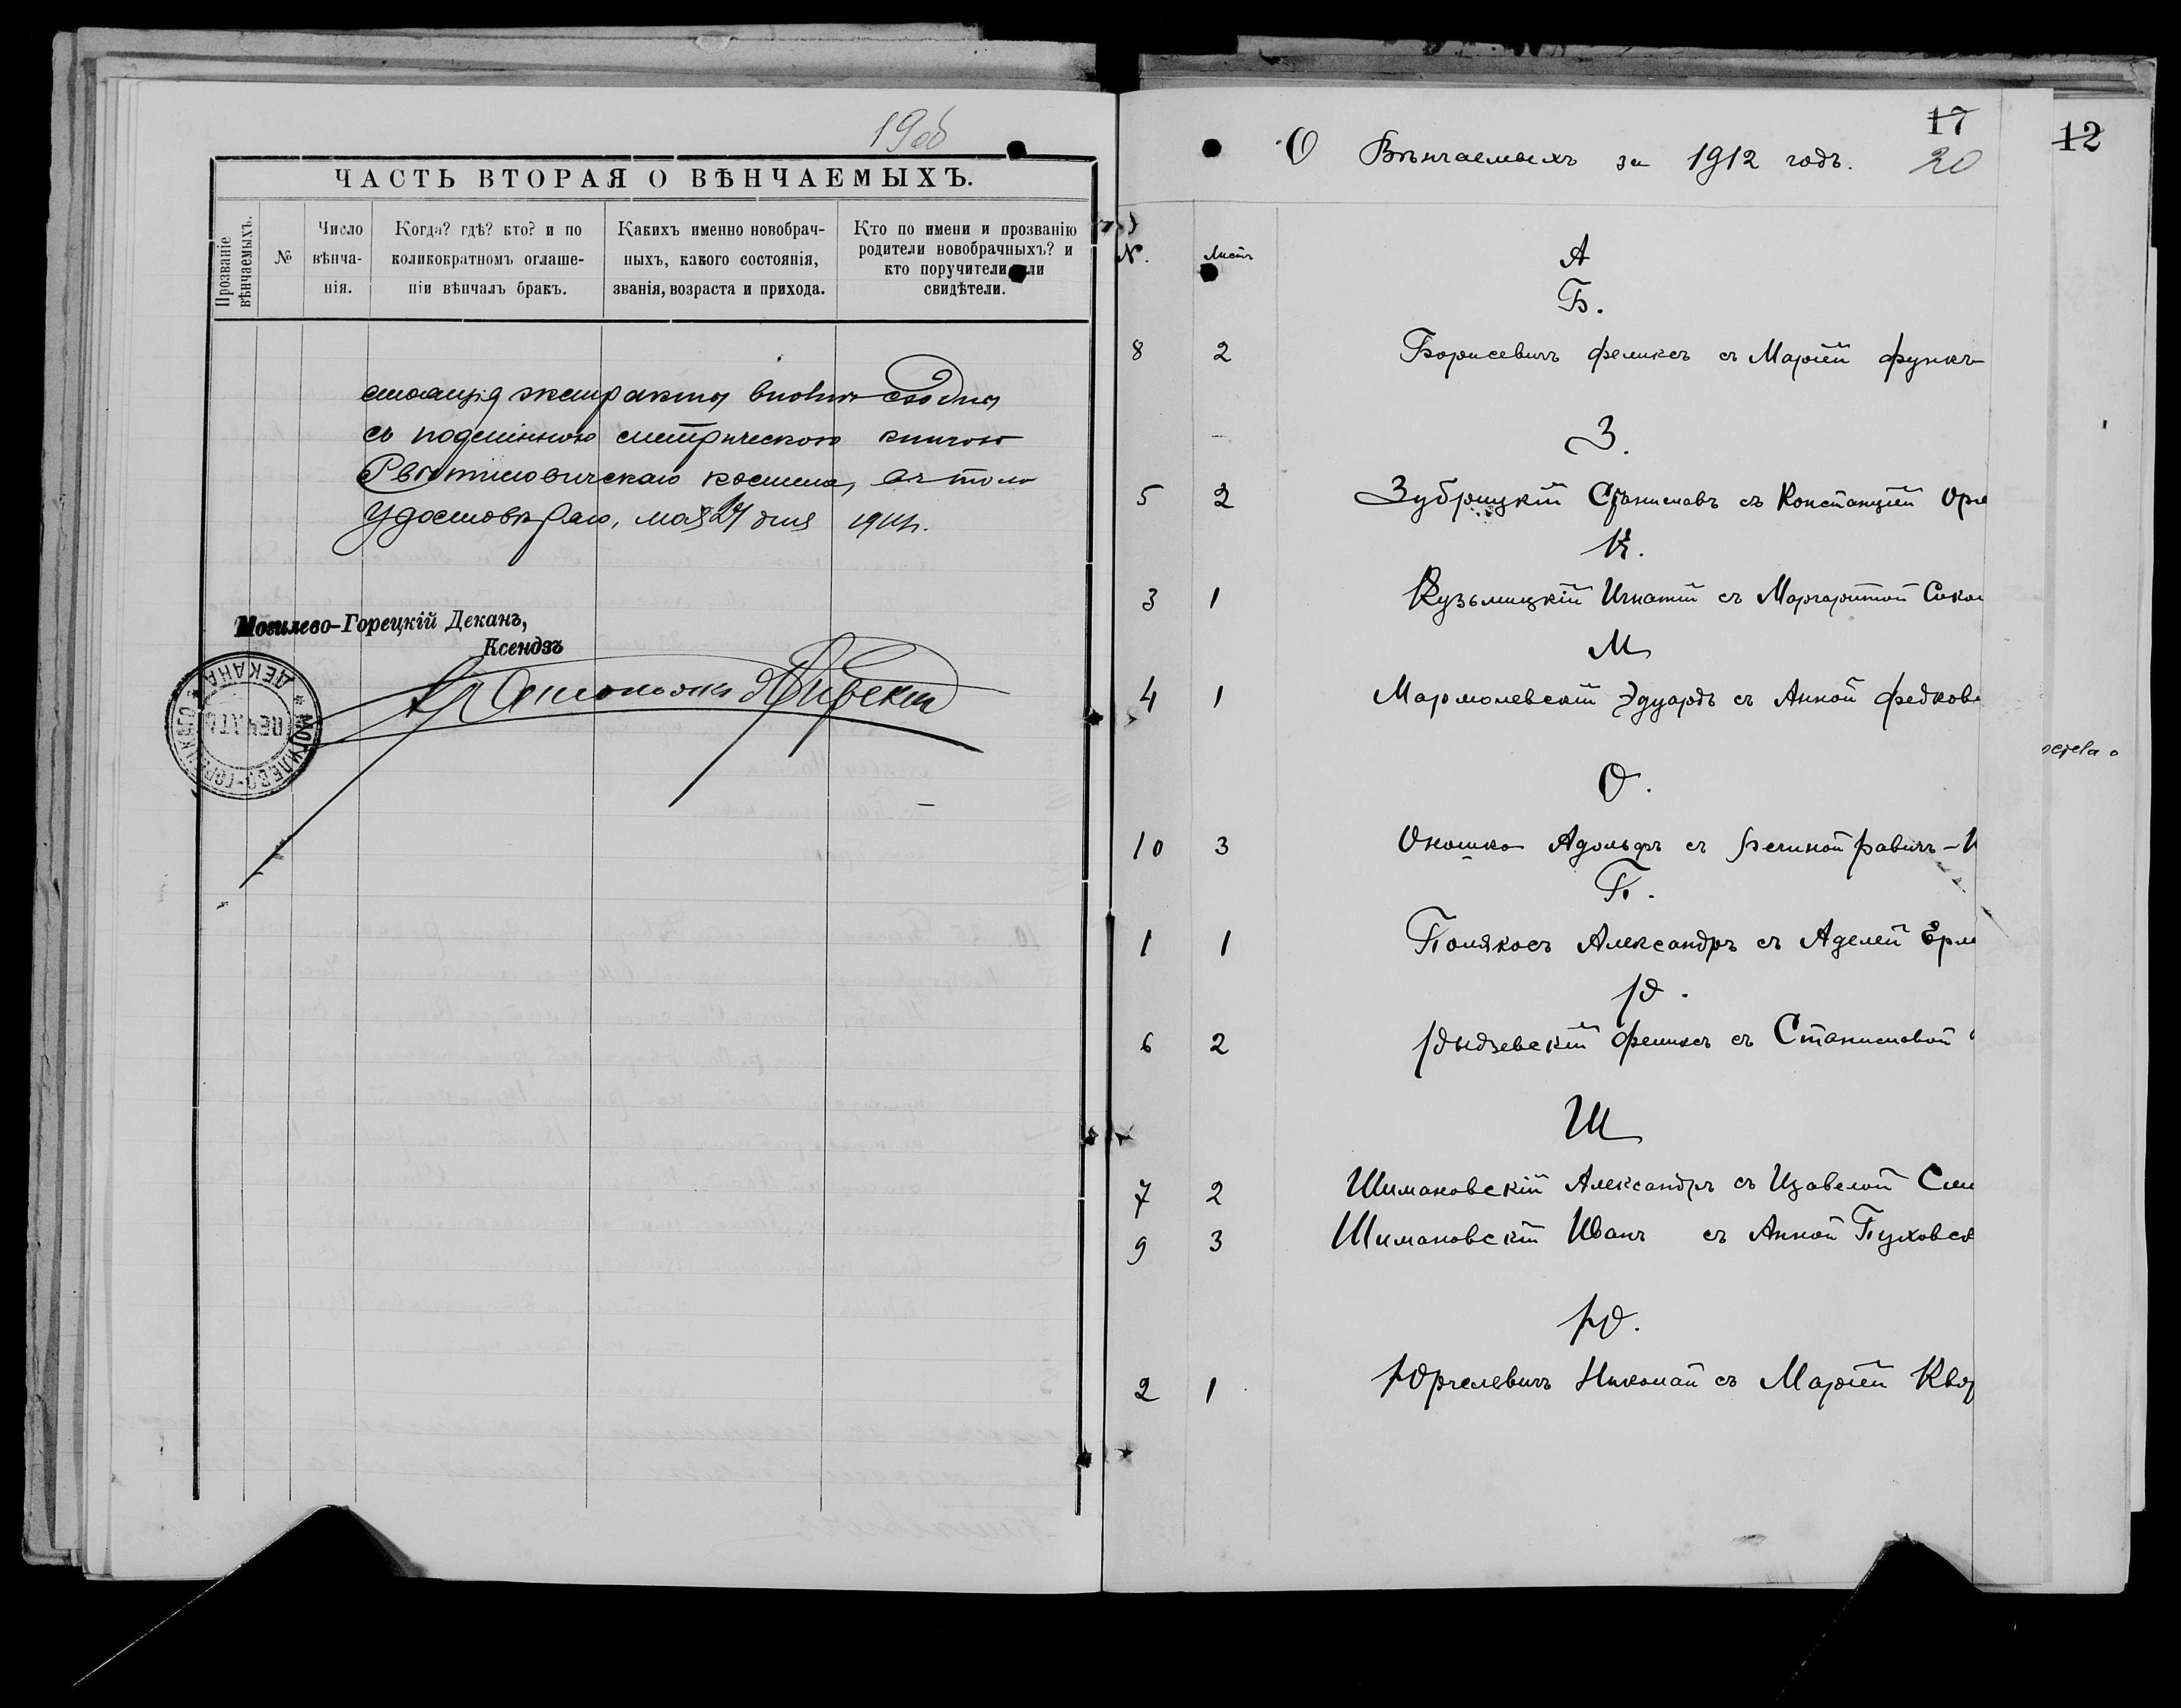 19об
ЧАСТЬ ВТОРАЯ О ВѢНЧАЕМЫХЪ.
Прозваніе вѣнчаемыхъ.
№
Число вѣнча-
нія.
Когда? гдѣ? кто? и по
коликократномъ оглаше-
ніи вѣнчалъ бракъ.
Какихъ именно новобрач-
ныхъ, какого состоянія,
званія, возраста и прихода.
Кто по имени и прозванію
родители новобрачныхъ? и
кто поручители или
свидѣтели.
экстракта вполнѣ сходна
съ подлинною метрическою книгою
костела, въ томъ
удостовѣряю, мая 27 дня
Могилево-Горецкій Деканъ,
Ксендзъ
ПЕЧАТЬ МОГИЛЕВО-ГОРЕЦКАГО ДЕКАНА
17
О Вѣнчаемыхъ за 1912 годъ. 20
12
№. Листъ
А
Б.
8 2 Борисевичъ Феликсъ съ Маріей Функъ
З.
5 2 Зубрицкій Станиславъ съ Констанціей Орл
К.
3 1 Кузьмицкій Игнатій съ Маргаритой Сокол
М
4 1 Мармолевскій Эдуардъ съ Анной Федков
О.
10 3 Окошко Адольфъ съ Равичъ-
П.
1 1 Поляковъ Александръ съ Аделей Ерм
Р.
6 2 Рыдзевскій Феликсъ съ Станиславой
Ш
7 2 Шимановскій Александръ съ Изабелой
9 3 Шимановскій Иванъ съ Анной Пуховск
Ю.
2 1 Юрчелевичъ Николай съ Маріей Квя